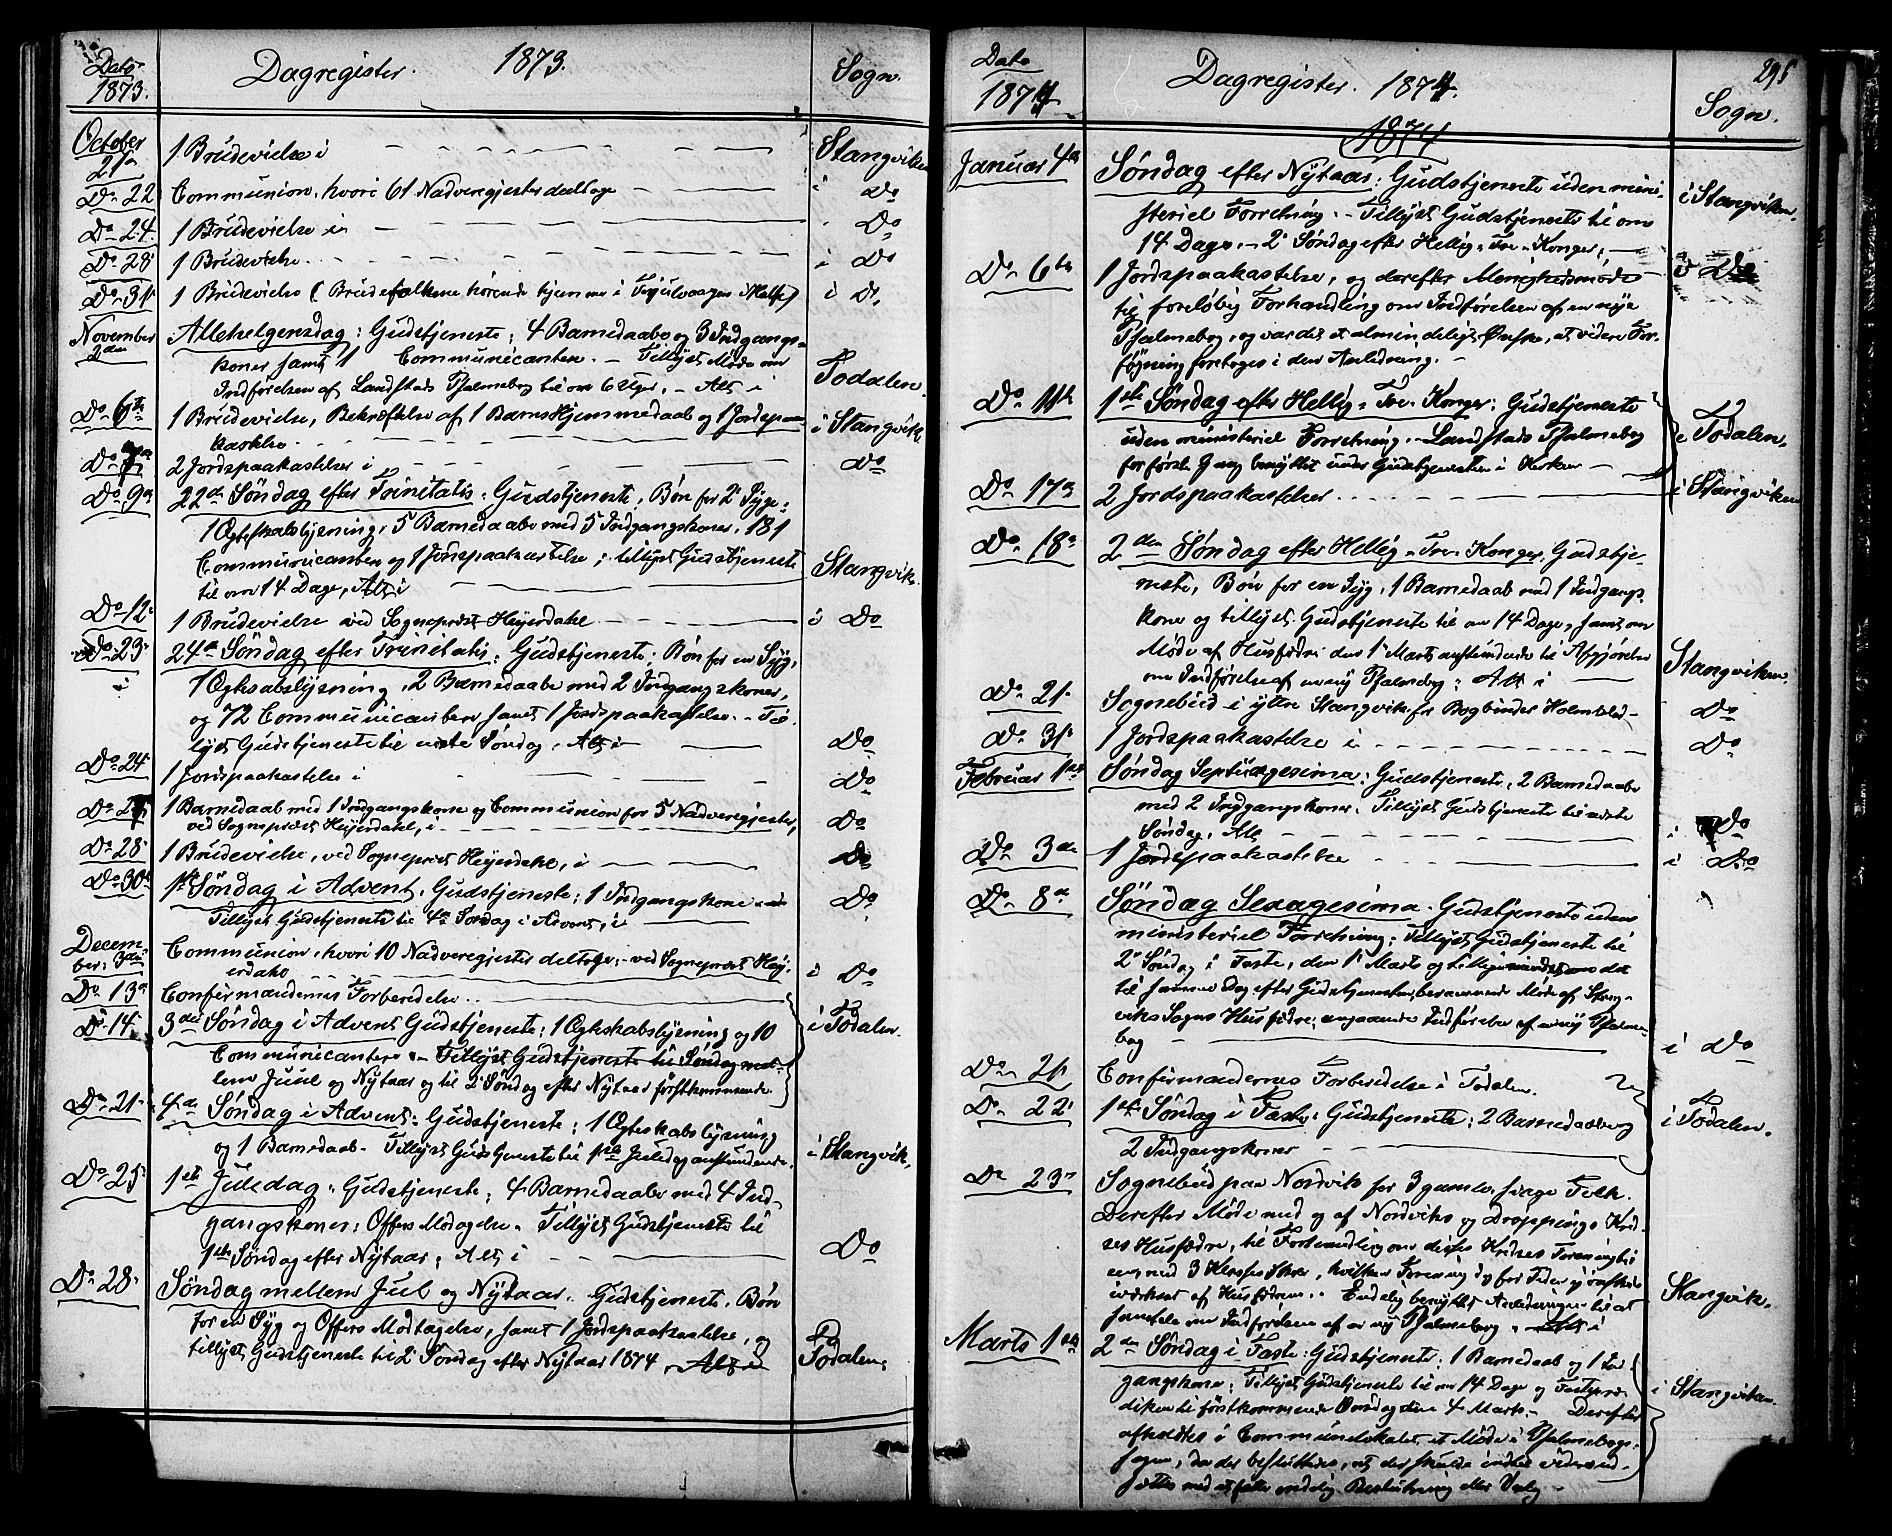 Dato
1873.
Dagregister. 1873.
Sogn.
October
21de 1 Brudevielse i Stangviken
Do 22 Communion, hvori 61 Nadveregjester deeltoge i Do
Do 24. 1 Brudevielse i Do
Do 28 1 Brudevielse i Do
Do 31 1 Brudevielse (Brudefolkene hørende hjemme i) i Do
November
2den Allehelgensdag: Gudstjeneste; 4 Barnedaabe og 3 Indgangs-
koner samt 1 Communicanter. - Tillyst Møde om
Indførelsen af Landstads Psalmebog til om 6 Uger. - Alt i Todalen.
Do 6te 1 Brudevielse, Bekræftelse af 1 Barns Hjemmedaab og 1 Jordspaa-
kastelse i Stangvik
Do 7de 2 Jordspaakastelser i Do
Do 9de 22de Søndag efter Trinitatis: Gudstjeneste; Bøn for 2 Syge;
1 Ægteskabslysning, 5 Barnedaabe med 5 Indgangskoner, 181
Communicanter og 1 Jordspaakastelse; tillyst Gudstjeneste
til om 14 Dage, Alt i Stangvik.
Do 12. 1 Brudevielse ved Sogneprest Heyerdahl i Do
Do 23. 24de Søndag efter Trinitatis: Gudstjeneste; Bøn for en Syg,
1 Ægteskabslysning, 2 Barnedaabe med 2 Indgangskoner,
og 72 Communicanter samt 1 Jordspaakastelse. - Til-
lyst Gudstjeneste til næste Søndag, Alt i Do
Do 24. 1 Jordspaakastelse i Do
Do 27 1 Barnedaab med 1 Indgangskone og Communion for 5 Nadveregjester,
ved Sogneprest Heyerdahl, i Do
Do 28. 1 Brudevielse, ved Sogneprest Heyerdahl, i Do
Do 30te 1ste Søndag i Advent. Gudstjeneste; 1 Indgangskone
Tillyst Gudstjeneste til 4de Søndag i Advent, i Do
Decem-
ber: 3die Communion, hvori 10 Nadveregjester deltoge; - ved Sogneprest Hey-
erdahl i Do
Do 13de Confirmandernes Forberedelse.
Do 14. 3die Søndag i Advent Gudstjeneste; 1 Ægteskabslysning og 10 i Todalen.
Communicanter - Tillyst Gudstjeneste til Søndag mel-
lem Juul og Nytaar og til 2 Søndag efter Nytaar førstkommende.
Do 21. 4de Søndag i Advent: Gudstjeneste; 1 Ægteskabslysning
og 1 Barnedaab. Tillyst Gudstjeneste til 1ste Juledag anstundende. i Stangvik.
Do 25. 1ste Juledag: Gudstjeneste; 4 Barnedaabe med 4 Ind-
gangskoner; Offers Modtagelse. Tillyst Gudstjeneste til
1ste Søndag efter Nytaar; Alt i Do
Do 28. Søndag mellem Jul og Nytaar. Gudstjeneste. Bøn
for en Syg og Offers Modtagelse, samt 1 Jordspaakastelse, og
tillyst Gudstjeneste til 2 Søndag efter Nytaar 1874, Alt i Todalen.
Dato
1874
Dagregister. 1874.
295
Sogn.
1874
Januar 4de Søndag efter Nytaar: Gudstjeneste uden mini-
steriel Forretning. - Tillyst Gudstjeneste til om i Stangviken.
14 Dage. - 2 Søndag efter Hellig-Tre-Konger;
Do 6te 1 Jordspaakastelse, og derefter Menighedsmøde i Do
til foreløbig Forhandling om Indførelsen af en ny
Psalmebog, og var det et almindeligt Ønske, at videre For-
føyning foretoges i den Anledning. -
Do 11te 1ste Søndag efter Hellig-Tre-Konger: Gudstjeneste
uden ministeriel Forretning. - Landstads Psalmebog i Todalen.
for første Gang benyttet under Gudstjenesten i Kirken
Do 17de 2 Jordspaakastelser i Stangviken
Do 18de 2den Søndag efter Hellig-Tre-Konger. Gudstje-
neste, Bøn for en Syg, 1 Barnedaab med 1 Indgangs-
kone og tillyst Gudstjeneste til om 14 Dage, samt om
Møde af Husfædre den 1 Marts anstundende til Afgjørelse
om Indførelse af en ny Psalmebog; Alt i Stangviken.
Do 21. Sognebud i ytre Stangvik for Bogbinder Holmblad Do
Do 31. 1 Jordspaakastelse i Do
Februar 1ste Søndag Septuagesima: Gudstjeneste, 2 Barnedaabe
med 2 Indgangskoner. Tillyst Gudstjeneste til næste
Søndag. Alt i Do
Do 3die 1 Jordspaakastelse i Do
Do 8de Søndag Sexagesima. Gudstjeneste uden
ministeriel Forretning; Tillyst Gudstjeneste til
2 Søndag i Faste, den 1 Marts og det
til samme Dag efter Gudstjenesten berammede Møde af Stang-
viks Sogns Husfædre, angaaende Indførelse af en ny Psalme-
bog i Do
Do 21. Confirmandernes Forberedelse i Todalen.
Do 22. 1ste Søndag i Faste: Gudstjeneste; 2 Barnedaabe og i Todalen.
2 Indgangskoner
Do 23. Sognebud paa Nordvik for 3 gamle svage Folk.
Derefter Møde med og af Nordviks og Drøppings Kred-
ses Husfædre, til Forhandling om disses Kredses Forening til
een, med 3, hvilken Forening dog for Tiden ej ønskes
af Husfædrene. Endelig benyttet Anledningen til at Stangvik.
samtale om Indførelsen af en ny Psalmebog. Alt i
Marts 1ste 2den Søndag i Faste: Gudstjeneste; 1 Barnedaab og 1 Ind-
gangskone; Tillyst Gudstjeneste til om 14 Dage og Fastepræ- i Stangviken.
diken til førstkommende Onsdag den 4 Marts. - Derefter
afholdtes i Communelokalet et Møde i Psalmebogs-
sagen, da der besluttedes, at der skulde indtil videre ud-
sættes med at fatte endelig Beslutning eller Valg -